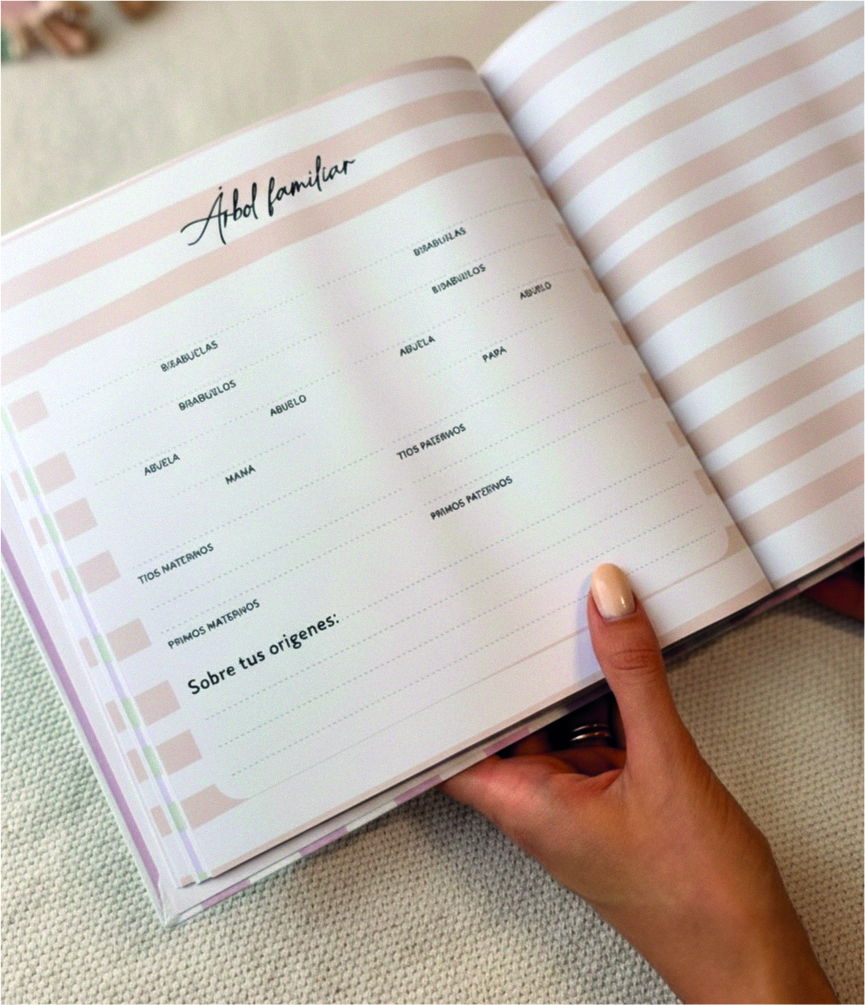 Árbol familiar
BISABUELAS
BISABUELOS
ABUELO
ABUELA
MANA
TIOS NATERNOS
PRIMOS MATERNOS
BISABUELAS
BISABUELOS
ABUELO
ABUELA
PAPA
TIOS PATERNOS
PRIMOS PATERNOS
Sobre tus orígenes: